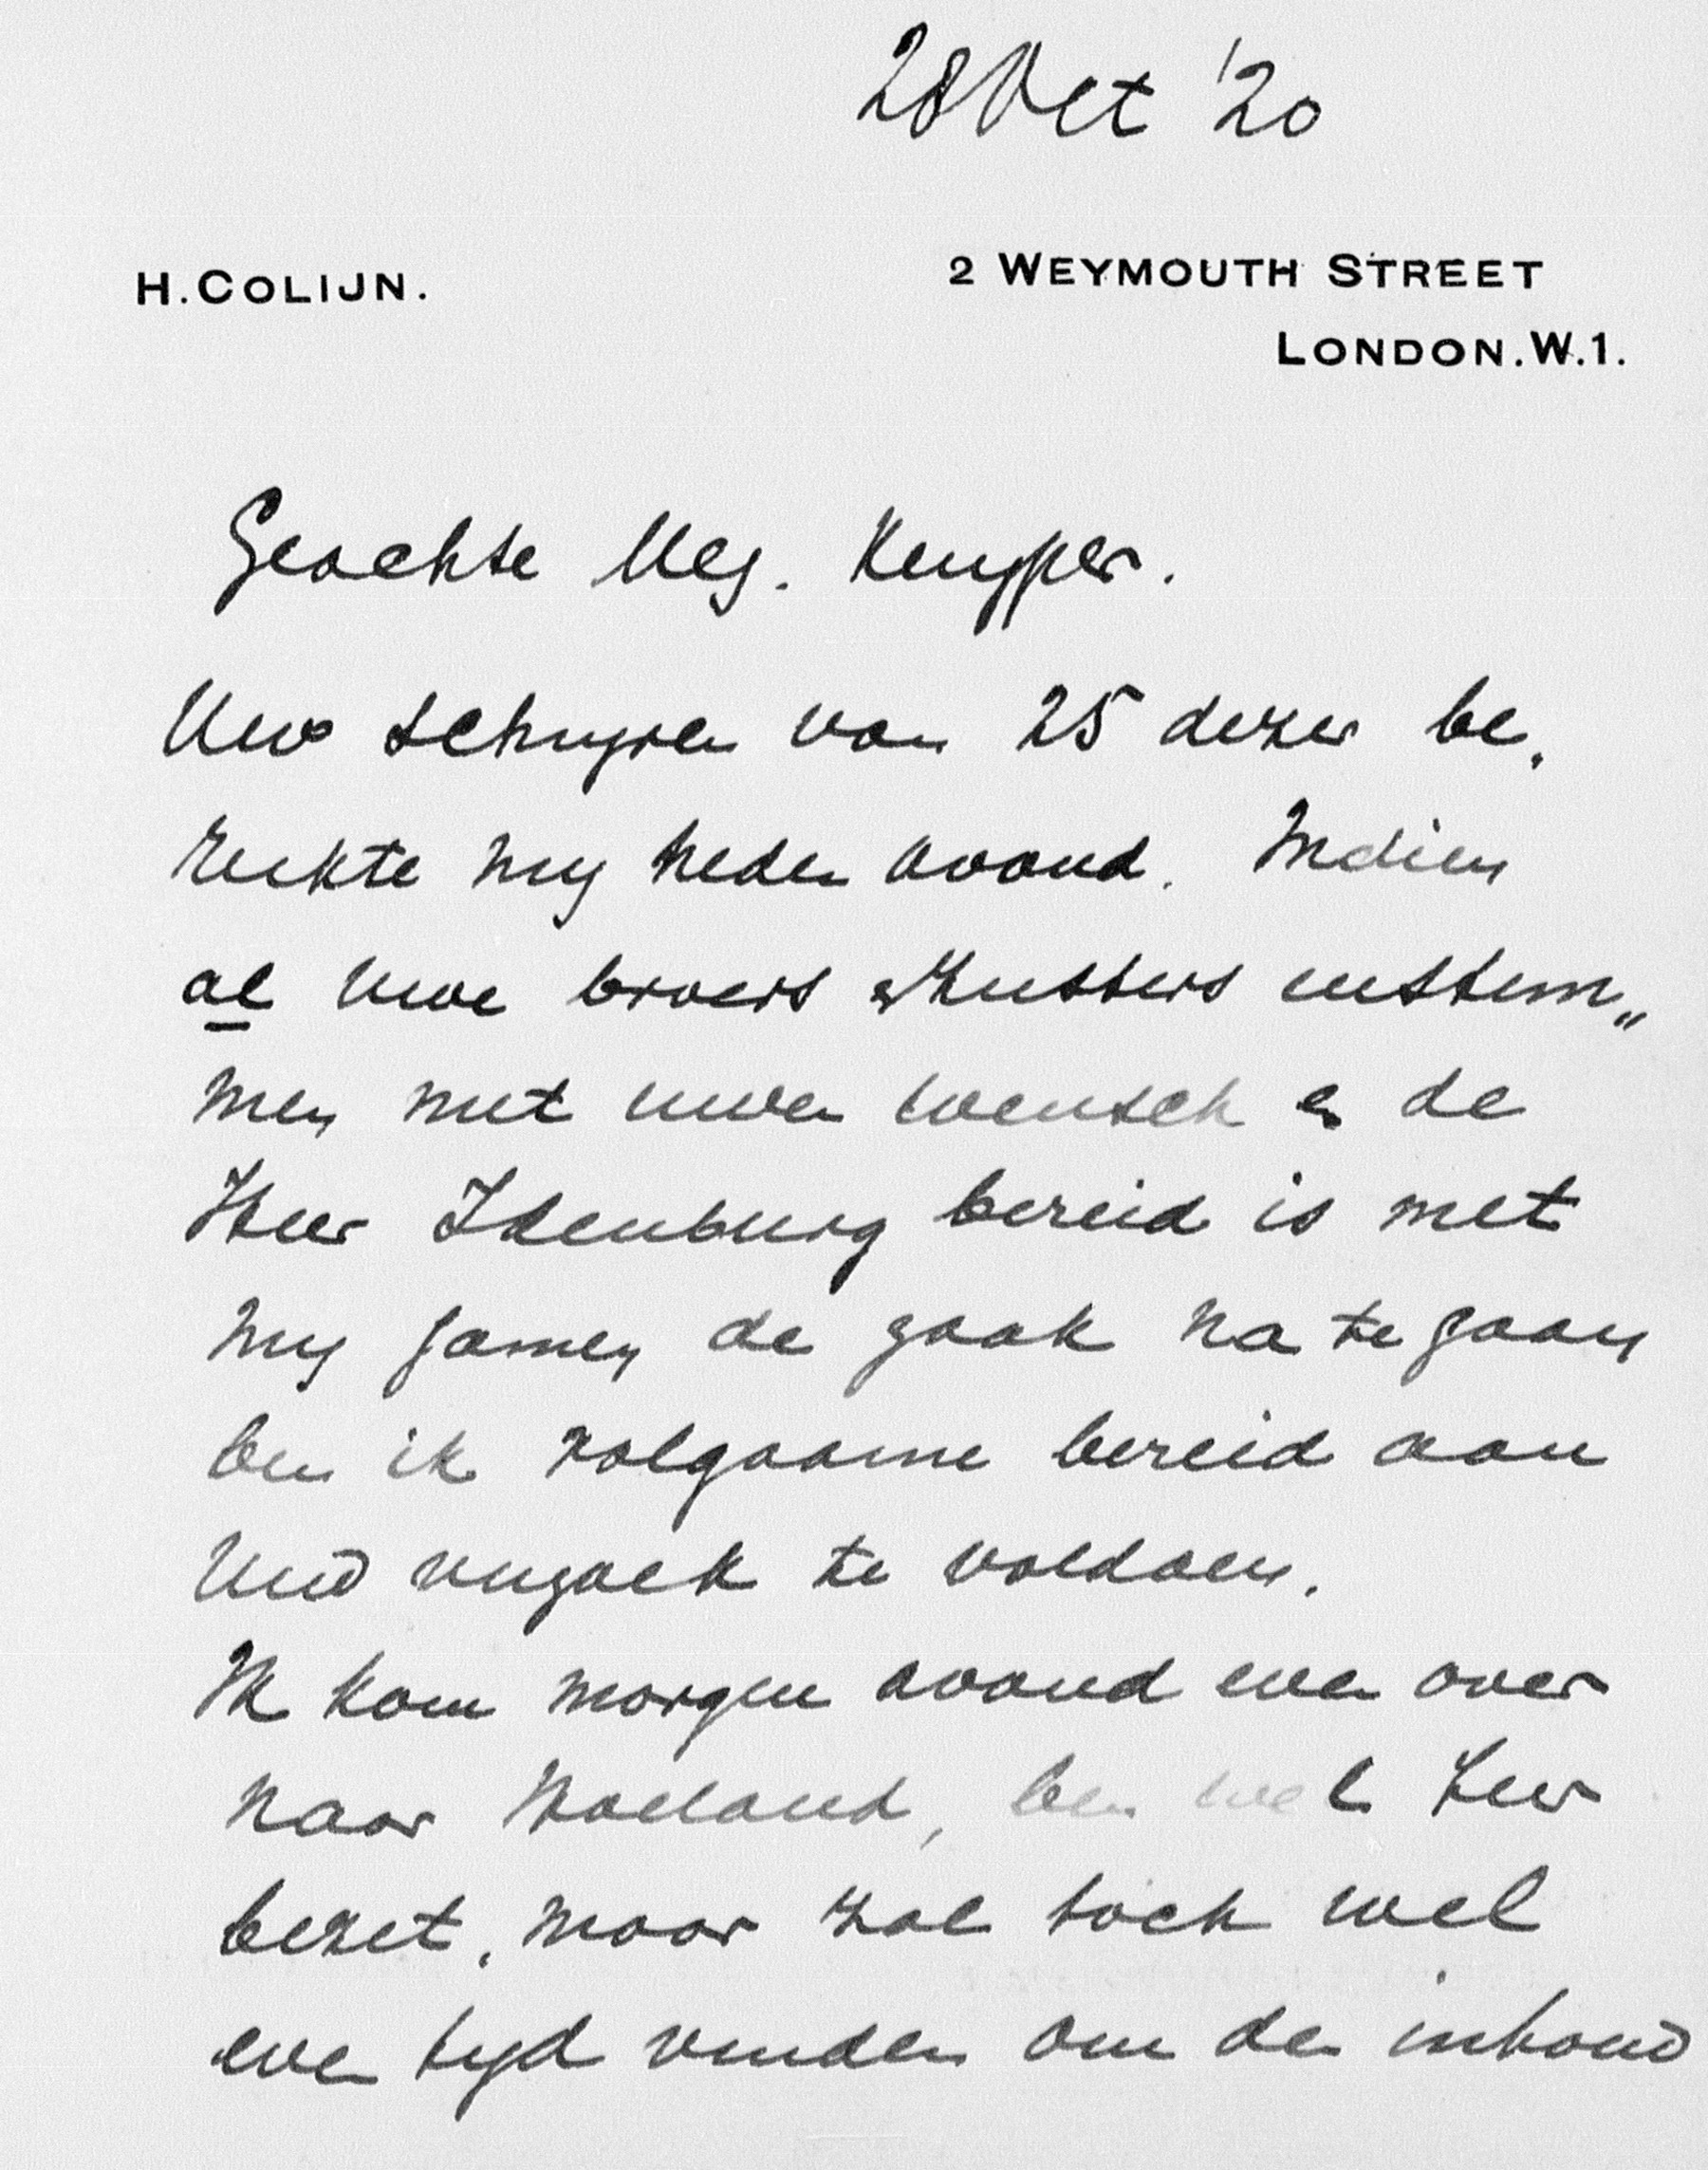 28 Oct '20
H. COLIJN.
2 WEYMOUTH STREET
LONDON. W.1.
Geachte Mej. Kuyper.
Uw schrijven van 25 dezer be-
reikte mij heden avond. Indien
al Uwe broers & zusters instem„
men met uwen wensch en de
Heer Idenburg bereid is met
mij samen de zaak na te gaan
ben ik volgaarne bereid aan
Uw verzoek te voldoen.
Ik kom morgen avond even over
naar Holland, ben wel zeer
bezet, maar zal toch wel
even tijd vinden om den inhoud